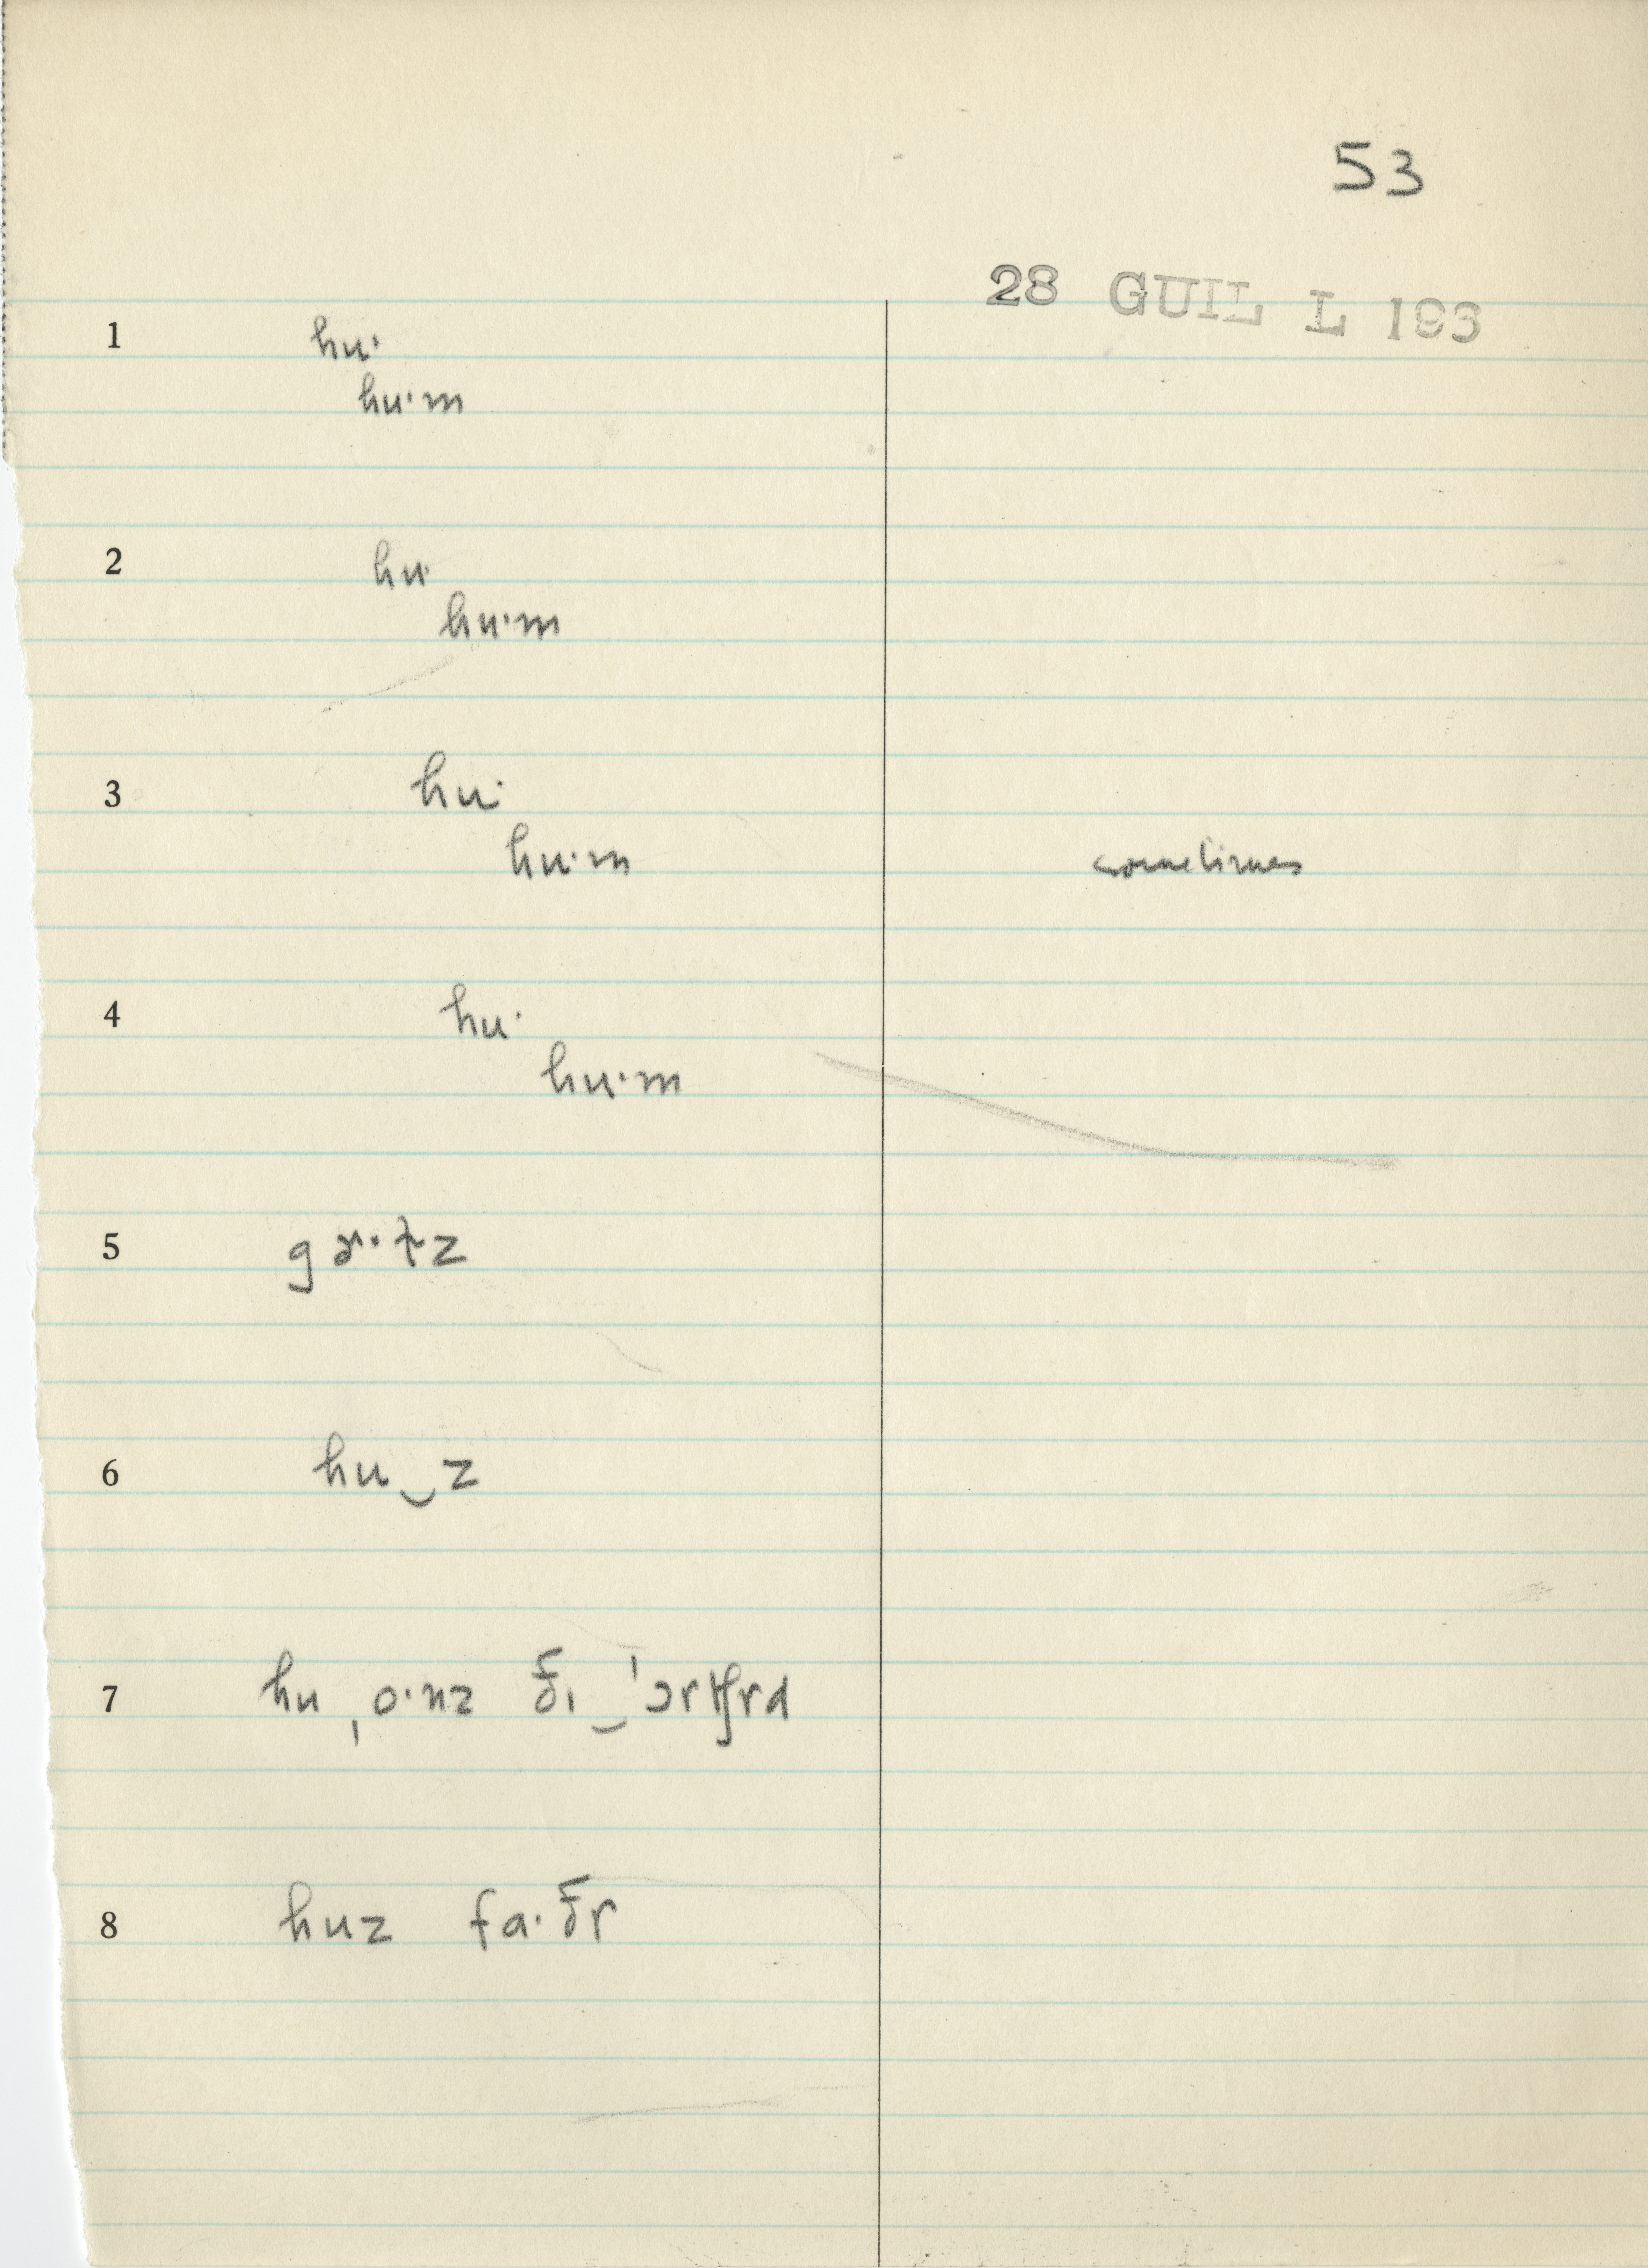 53
28 GUIL L 193
1 hu·
hu·m
2 hu·
hu·m
3 hu·
hu·m sometimes
4 hu·
hu·m
5
6 hu‿z
7 hu ˌo·nz ðɪ‿ˈɔrtʃrd
8 huz fa·ðr